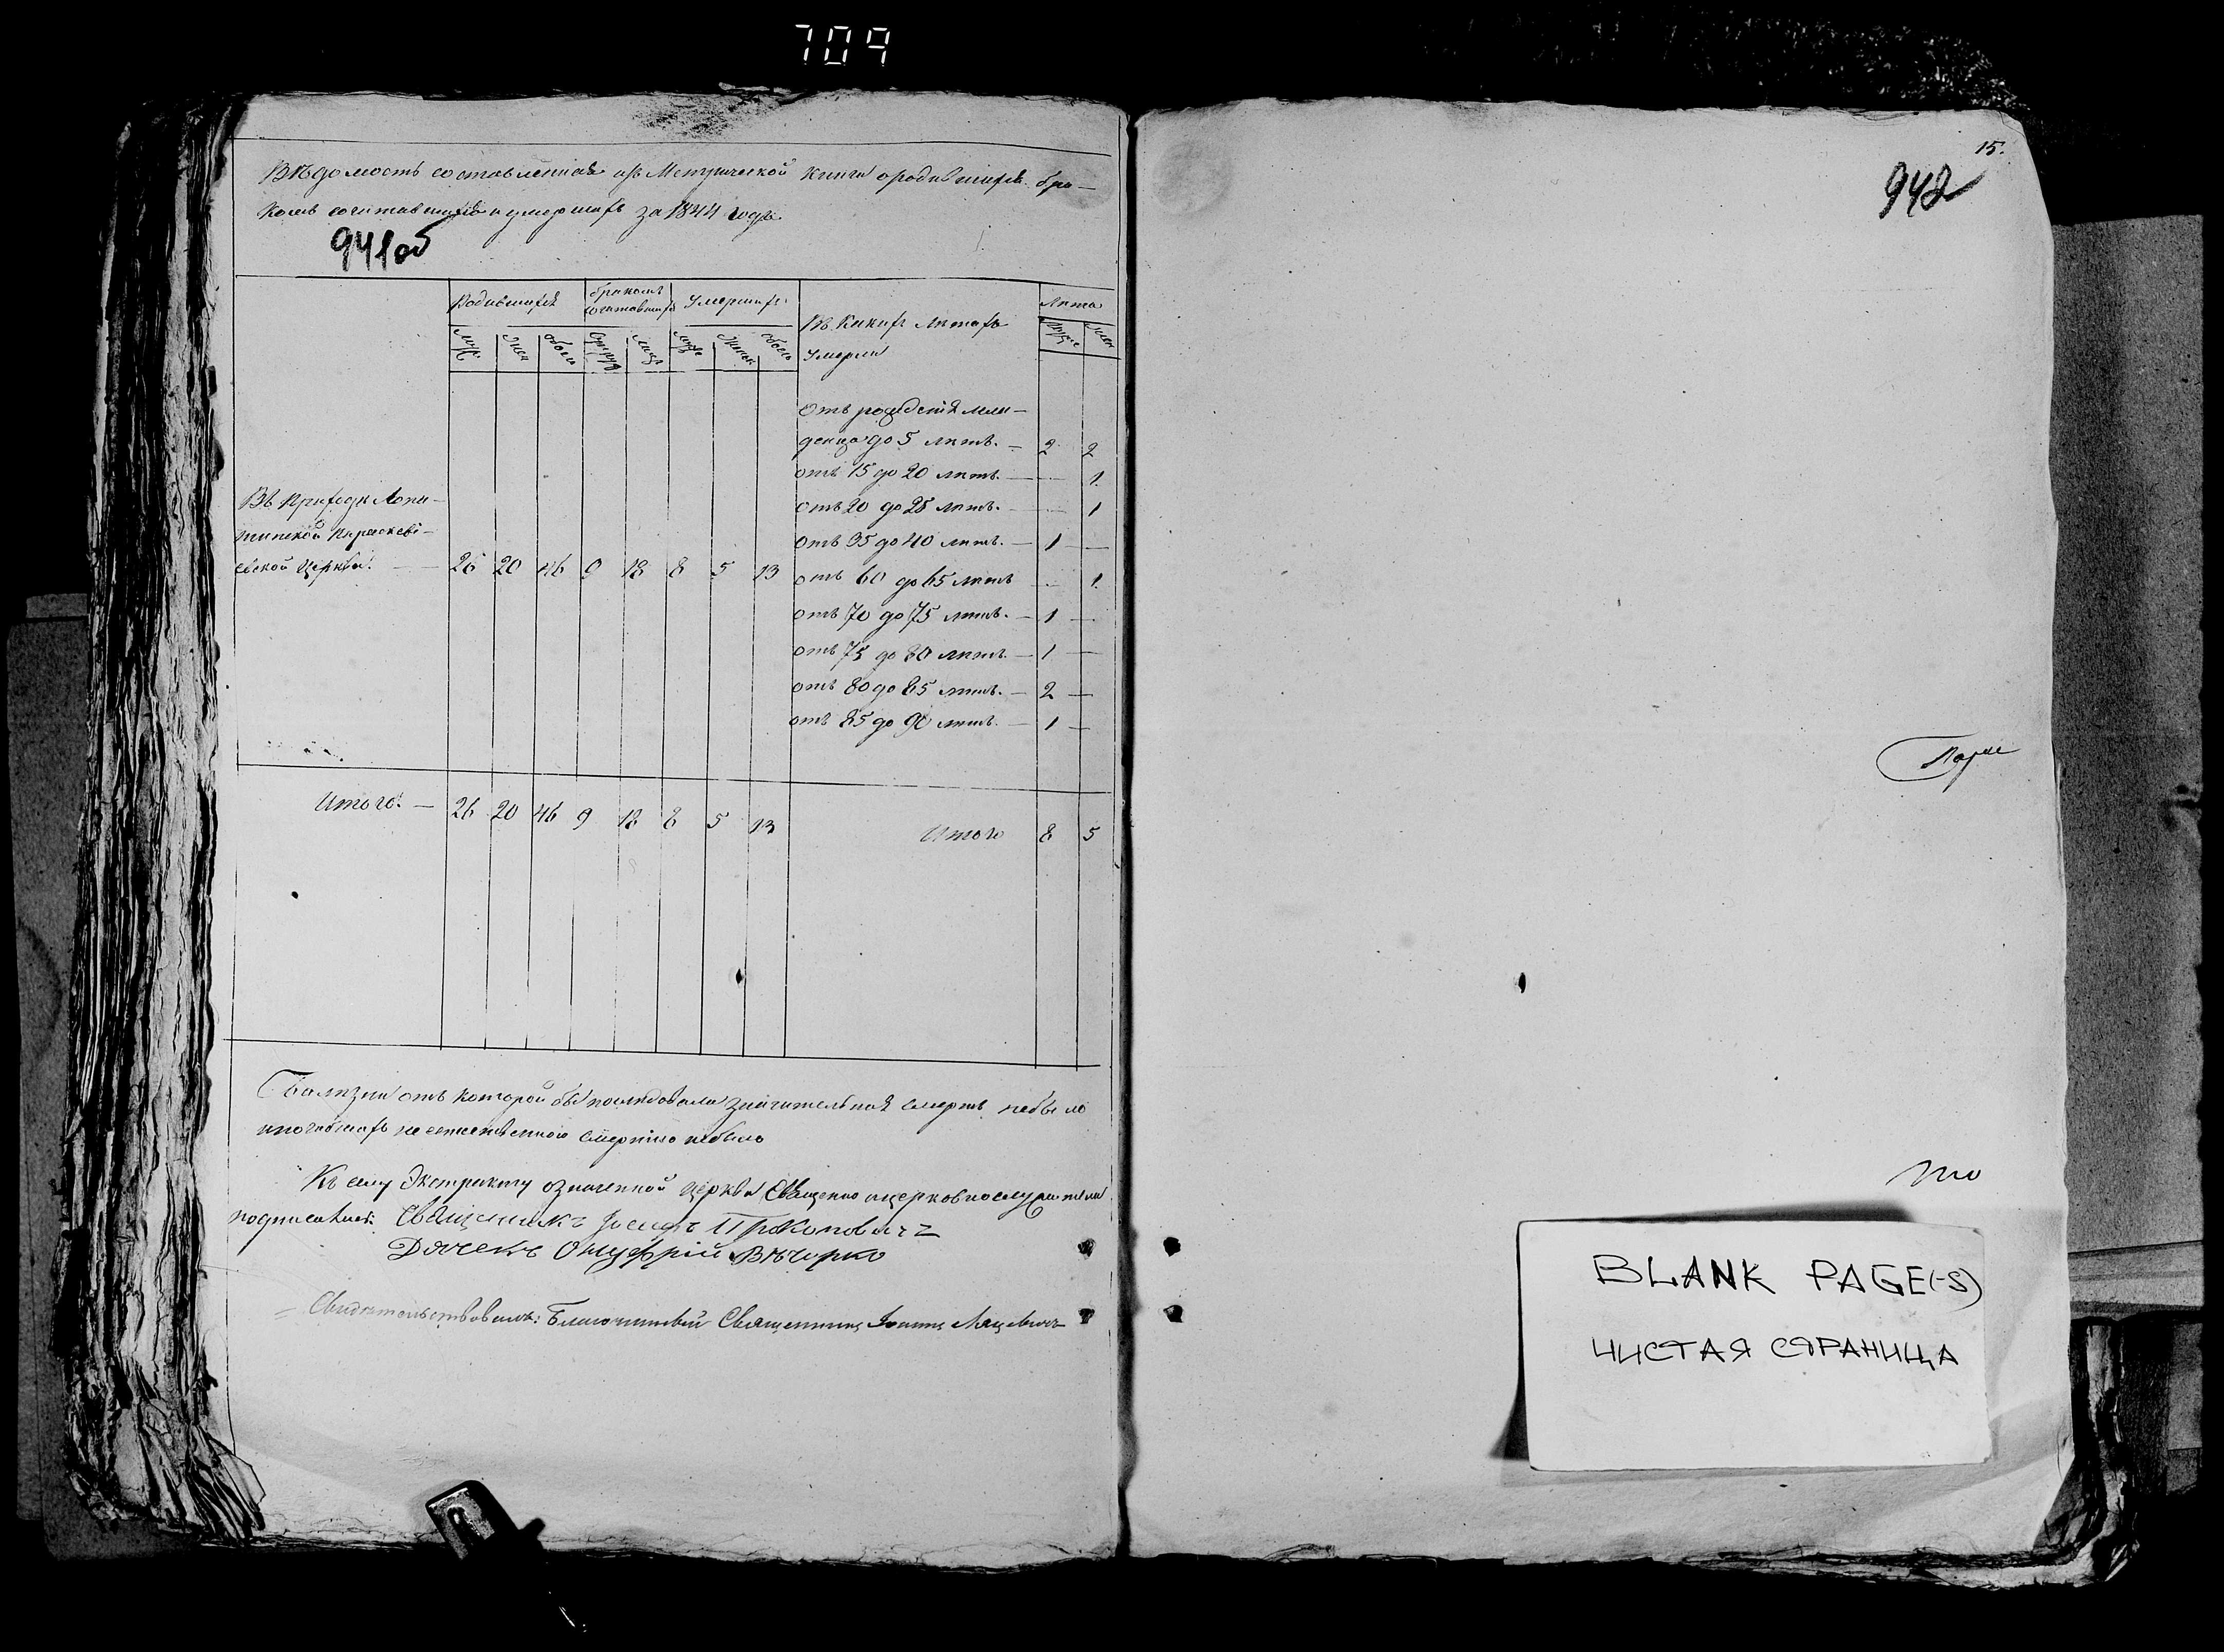 709
Вѣдомость составленная изъ Метрической книги о родившихся бра-
комъ сочитавшихся и умершихъ за 1844 годъ.
941об
Родившихся
Бракомъ сочитавшихся
Умершихъ
Въ какихъ лѣтахъ
умерли
Лѣта
Муж
Жен
Обоего
Супруж
Лицъ
Муж
Женск
Обоего
Муже
Жен
отъ рождения мла-
денца до 5 лѣтъ. — 2 2
отъ 15 до 20 лѣтъ. — — 1.
отъ 20 до 25 лѣтъ. — — 1
отъ 35 до 40 лѣтъ. — 1 —
Въ Приходѣ Лопа-
тинской Параскеві-
евской церкви. — 26 20 46 9 18 8 5 13
отъ 60 до 65 лѣтъ — 1.
отъ 70 до 75 лѣтъ. — 1 —
отъ 75 до 80 лѣтъ. — 1 —
отъ 80 до 85 лѣтъ. — 2 —
отъ 85 до 90 лѣтъ. — 1 —
Итого. — 26 20 46 9 18 8 5 13
Итого 8 5
болѣзни отъ которой бы последовала значительная смерть небыло
и погибшихъ не естественною смертию небыло
Къ сему Экстракту означенной церкви Священно ицерковнослужители
подписались: Священникъ Іосифъ Прокоповичъ
Дячекъ Онуфрій Вѣчорко
Свидетельствовалъ: Благочинный Священникъ Іоаннъ
15.
942
то
BLANK PAGE(-S)
ЧИСТАЯ СТРАНИЦА